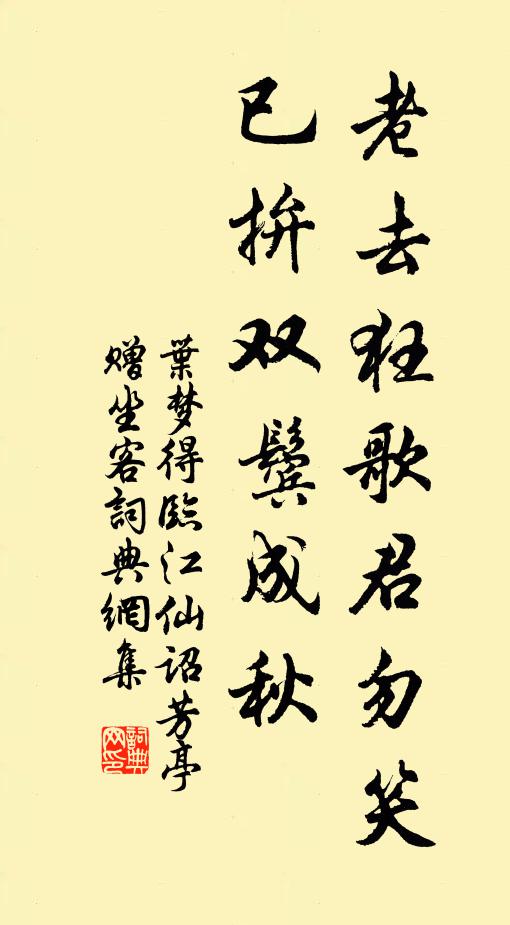 老去狂歌君勿笑
已拚双鬓成秋
葉梦得臨江仙詔芳亭
贈坐客詞典網集
詞典网印